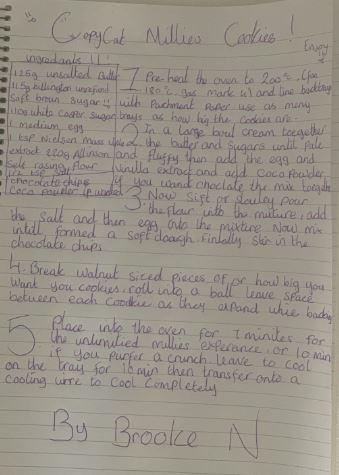 CopyCat Millies Cookies!
Enjoy
ingredants !!
125g unsalted butter
115g billington unrefined
Soft brown Sugar
110g white Caster Sugar
1 medium egg
1 tsp Nielsen mass
extract 225g Allinson
Self raising flour
1/2 tsp salt
chocolate chips
Coco Powder if wanted
1 Pre-heat the oven to 200°c, (fan
180°c, gas mark 6) and line backing
with Parchment Paper use as many
trays as how big the cookies are.
2 In a large bowl cream toegether
the butter and Sugars until Pale
and fluffy then add the egg and
vinilla extract and add Coco Powder
if you want choclate the mix toegether
3 Now Sift or slowley pour
the flour into the mixture, add
the Salt and then egg into the mixture. Now mix
intill formed a soft doough. Finlally stir in the
chocolate chips
4. Break walnut sized pieces of, or how big you
want you cookies, roll into a ball leave space
between each Coodkie as they expand whie backing
5 Place into the oven for 7 minites for
the unlimited millies experance, or 10 min
if you purfer a crunch. leave to cool
on the tray for 10 min then transfer onto a
cooling wire to Cool Completely
By Brooke N